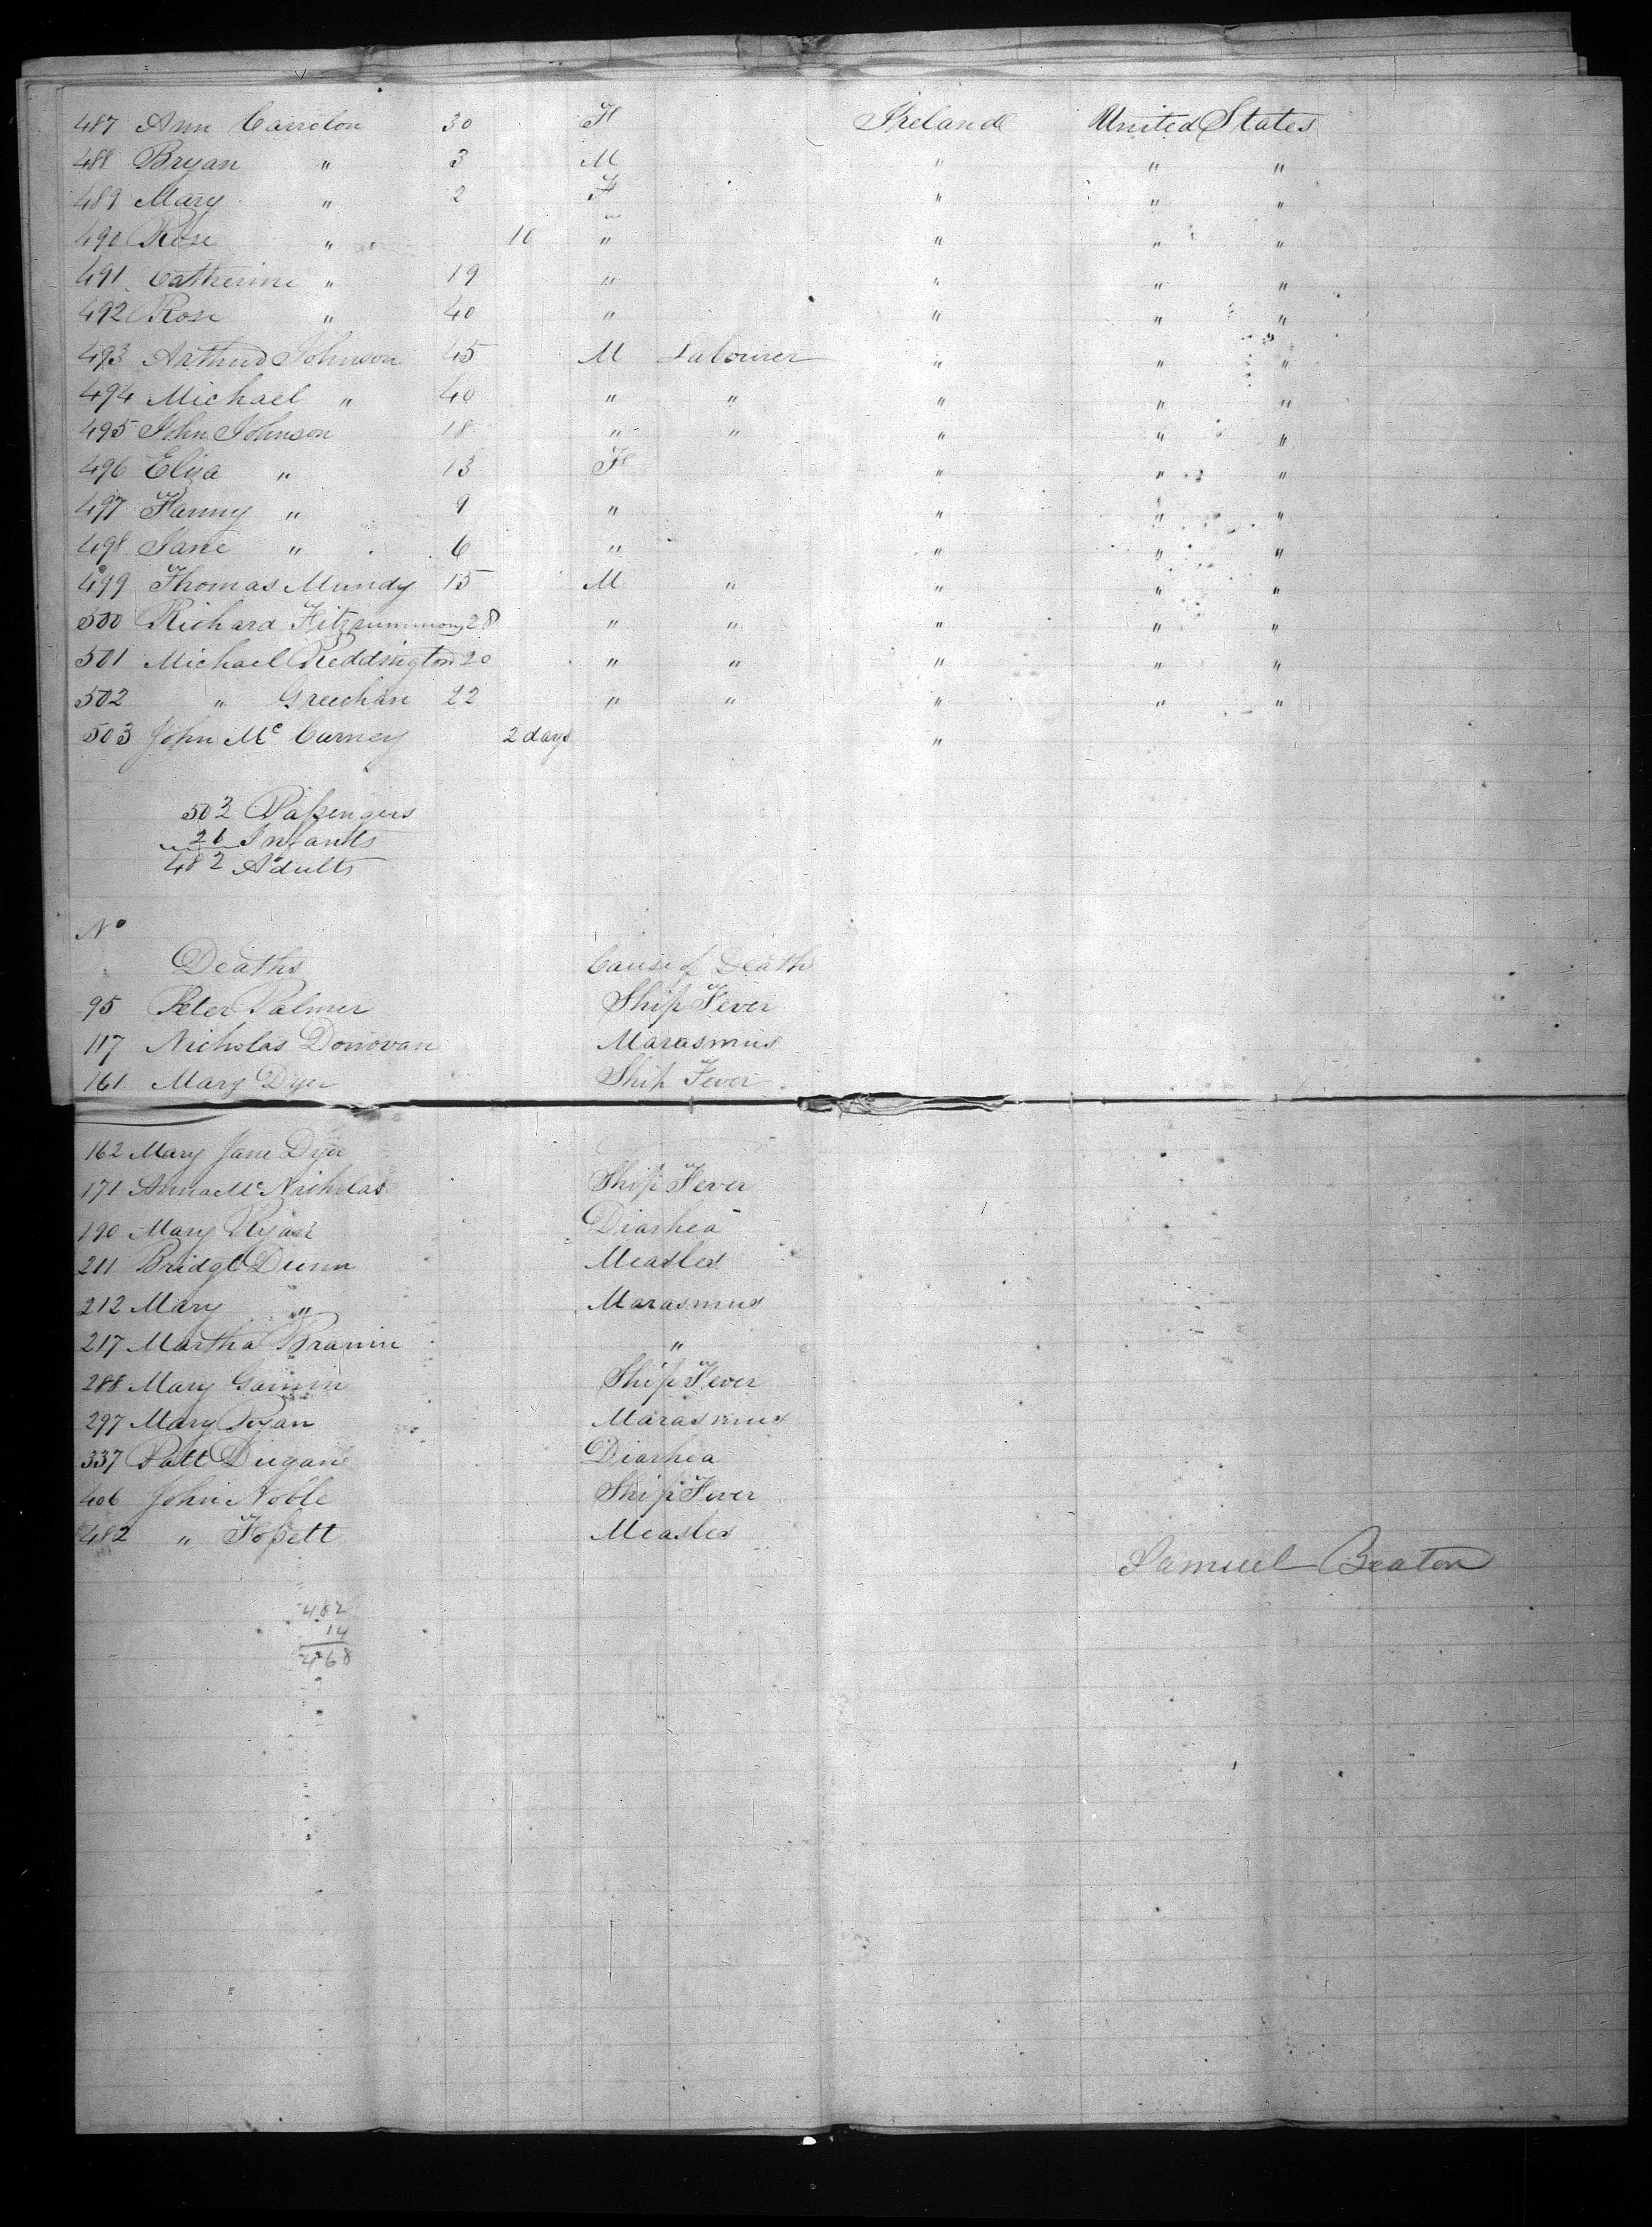 487 Ann Carrolon 30 F Ireland United States
488 Bryan " 3 M " " "
489 Mary " 2 F " " "
490 Rose " 10 " " " "
491 Catherine " 19 " " " "
492 Rose " 40 " " " "
493 Arthur Johnson 45 M Labourer " " "
494 Michael " 40 " " " " "
495 John Johnson 18 " " " " "
496 Eliza " 13 F " " "
497 Fanny " 9 " " " "
498 Jane " 6 " " " "
499 Thomas Mundy 15 M " " " "
500 Richard Fitzsummons 28 " " " " "
501 Michael Reddington 20 " " " " "
502 " Greechan 22 " " " " "
503 John Mc Carney 2 days "
503 Paßengers
21 Infants
482 Adults
No
Deaths Cause of Death
95 Peter Palmer Ship Fever
117 Nicholas Donovan Marasmus
161 Mary Dyer Ship Fever
162 Mary Jane Dyer
171 Anna Mc Nicholas Ship Fever
190 Mary Ryan Diarhea
211 Bridgt Dunn Measles
212 Mary " Marasmus
217 Martha Branin "
288 Mary Gannin Ship Fever
297 Mary Ryan Marasmus
337 Patt Dugan Diarhea
406 John Noble Ship Fever
482 " Foßett Measles
Samuel Beaton
482
14
468